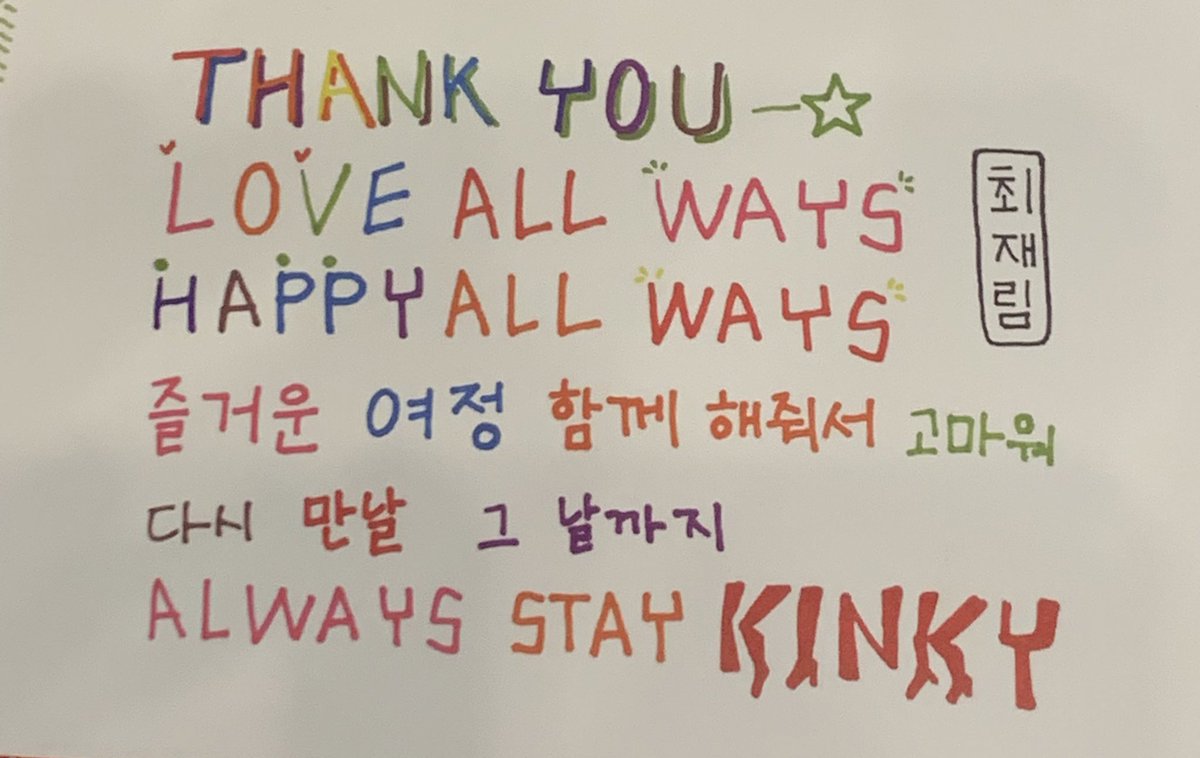 THANK YOU
LOVE ALL WAYS
HAPPY ALL WAYS
최재림
즐거운 여정 함께 해줘서 고마워
다시 만날 그 날까지
ALWAYS STAY KINKY